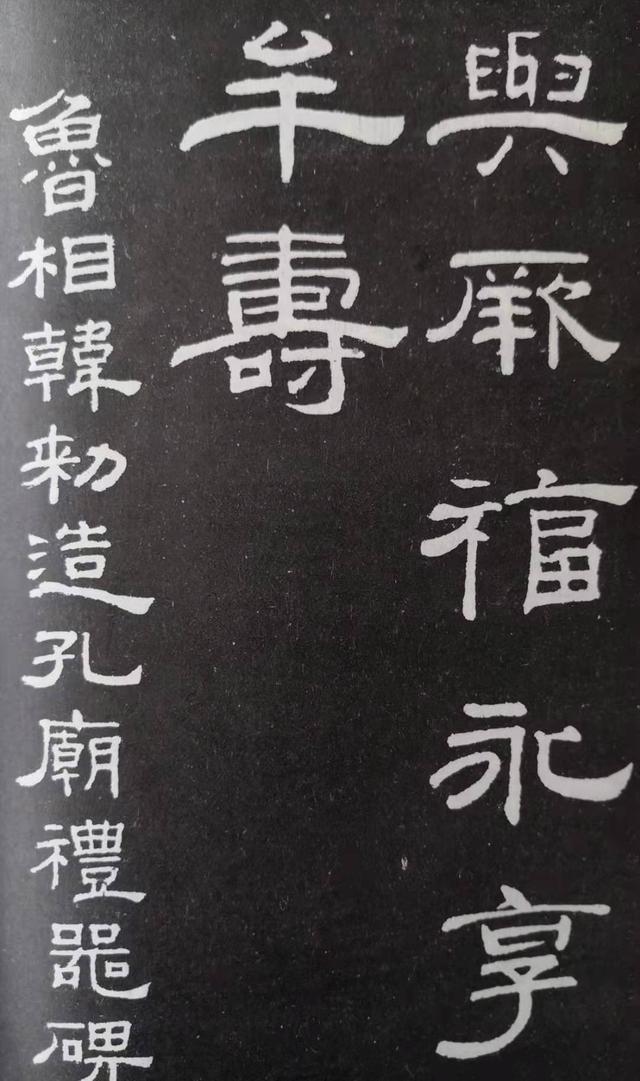 興厥福永享
牟壽
魯相韓勑造孔廟禮器碑